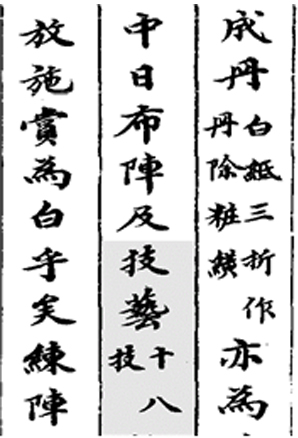 成丹白紙三折作丹除粧䌙亦為
中日布陣及技藝十八技
放施賞為白乎矣練陣